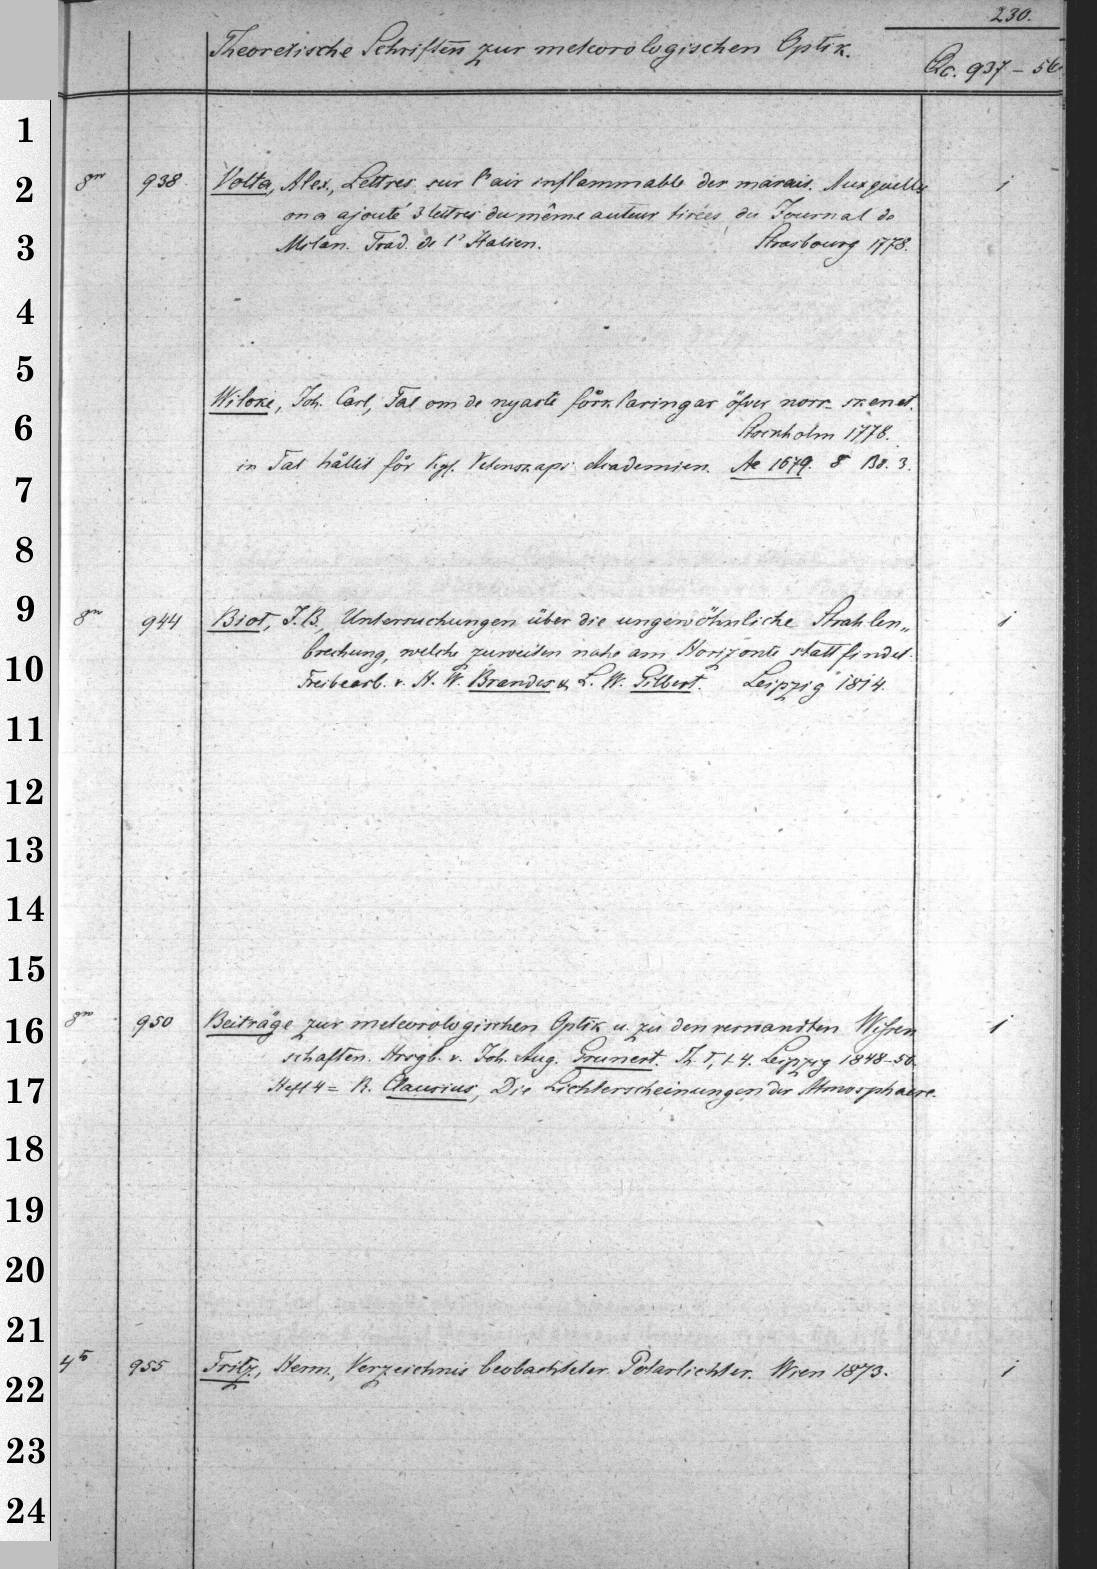 230.
Theoretische Schriften zur meteorologischen Optik.
Qc. 937 - 56
1
2
3
4
5
6
7
8
9
10
11
12
13
14
15
16
17
18
19
20
21
22
23
24
8vo 938 Volta, Alex., Lettres sur l'air inflammable des marais. Auxquelles 1
on a ajouté 3 lettres du même auteur tirées du Journal de
Milan. Trad. de l'Italien. Strasbourg 1778.
Wilcke, Joh. Carl, Tal om de nyaste förklaringar öfver norr-skenet.
Stockholm 1778.
in Tal hållit för Kgl. Vetenskaps Academien. Ae 1679. 8 Bd. 3.
8vo 944 Biot, J. B., Untersuchungen über die ungewöhnliche Strahlen„ 1
brechung, welche zuweilen nahe am Horizonte stattfindet.
Frei bearb. v. H. W. Brandes & L. W. Gilbert. Leipzig 1814.
8vo 950 Beiträge zur meteorologischen Optik u. zu den verwandten Wissen 1
schaften. Hrsgb. v. Joh. Aug. Grunert. Th. I, 1-4. Leipzig 1848-50.
Heft 4 = R. Clausius, Die Lichterscheinungen der Atmosphaere.
4to 955 Fritz, Herm., Verzeichnis beobachteter Polarlichter. Wien 1873. 1